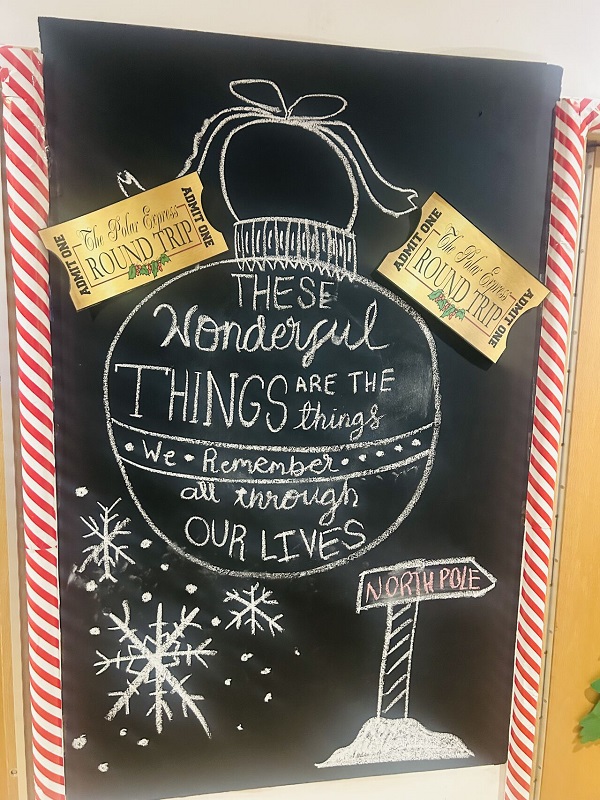 ADMIT ONE
The Polar Express
ROUND TRIP
ADMIT ONE
ADMIT ONE
The Polar Express
ROUND TRIP
ADMIT ONE
THESE
Wonderful
THINGS ARE THE
things
We • Remember
all through
OUR LIVES
NORTH POLE